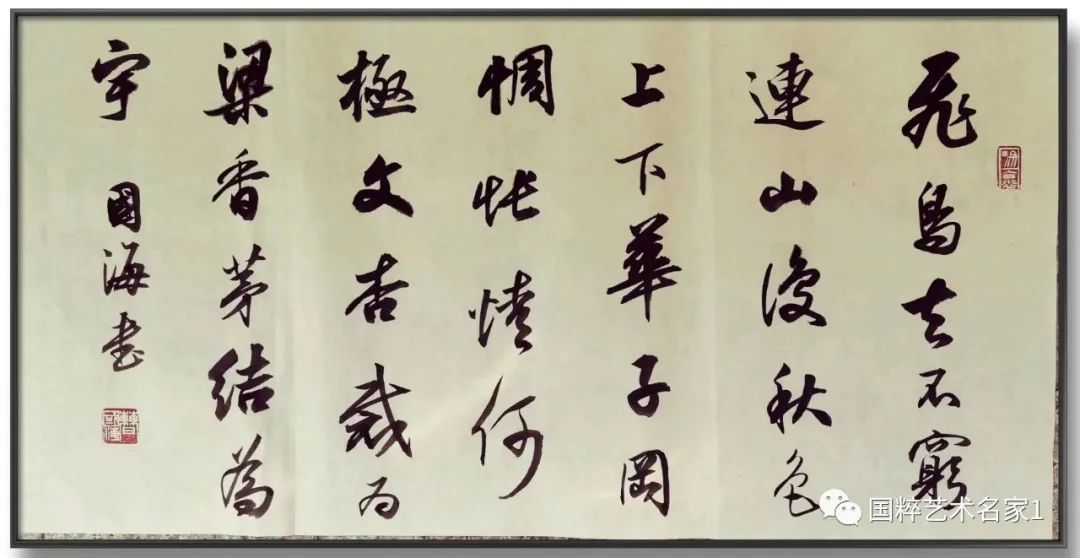 飛鳥去不窮
連山復秋色
上下華子岡
惆悵情何
極文杏裁为
梁香茅結為
宇 國海书
国粹艺术名家1